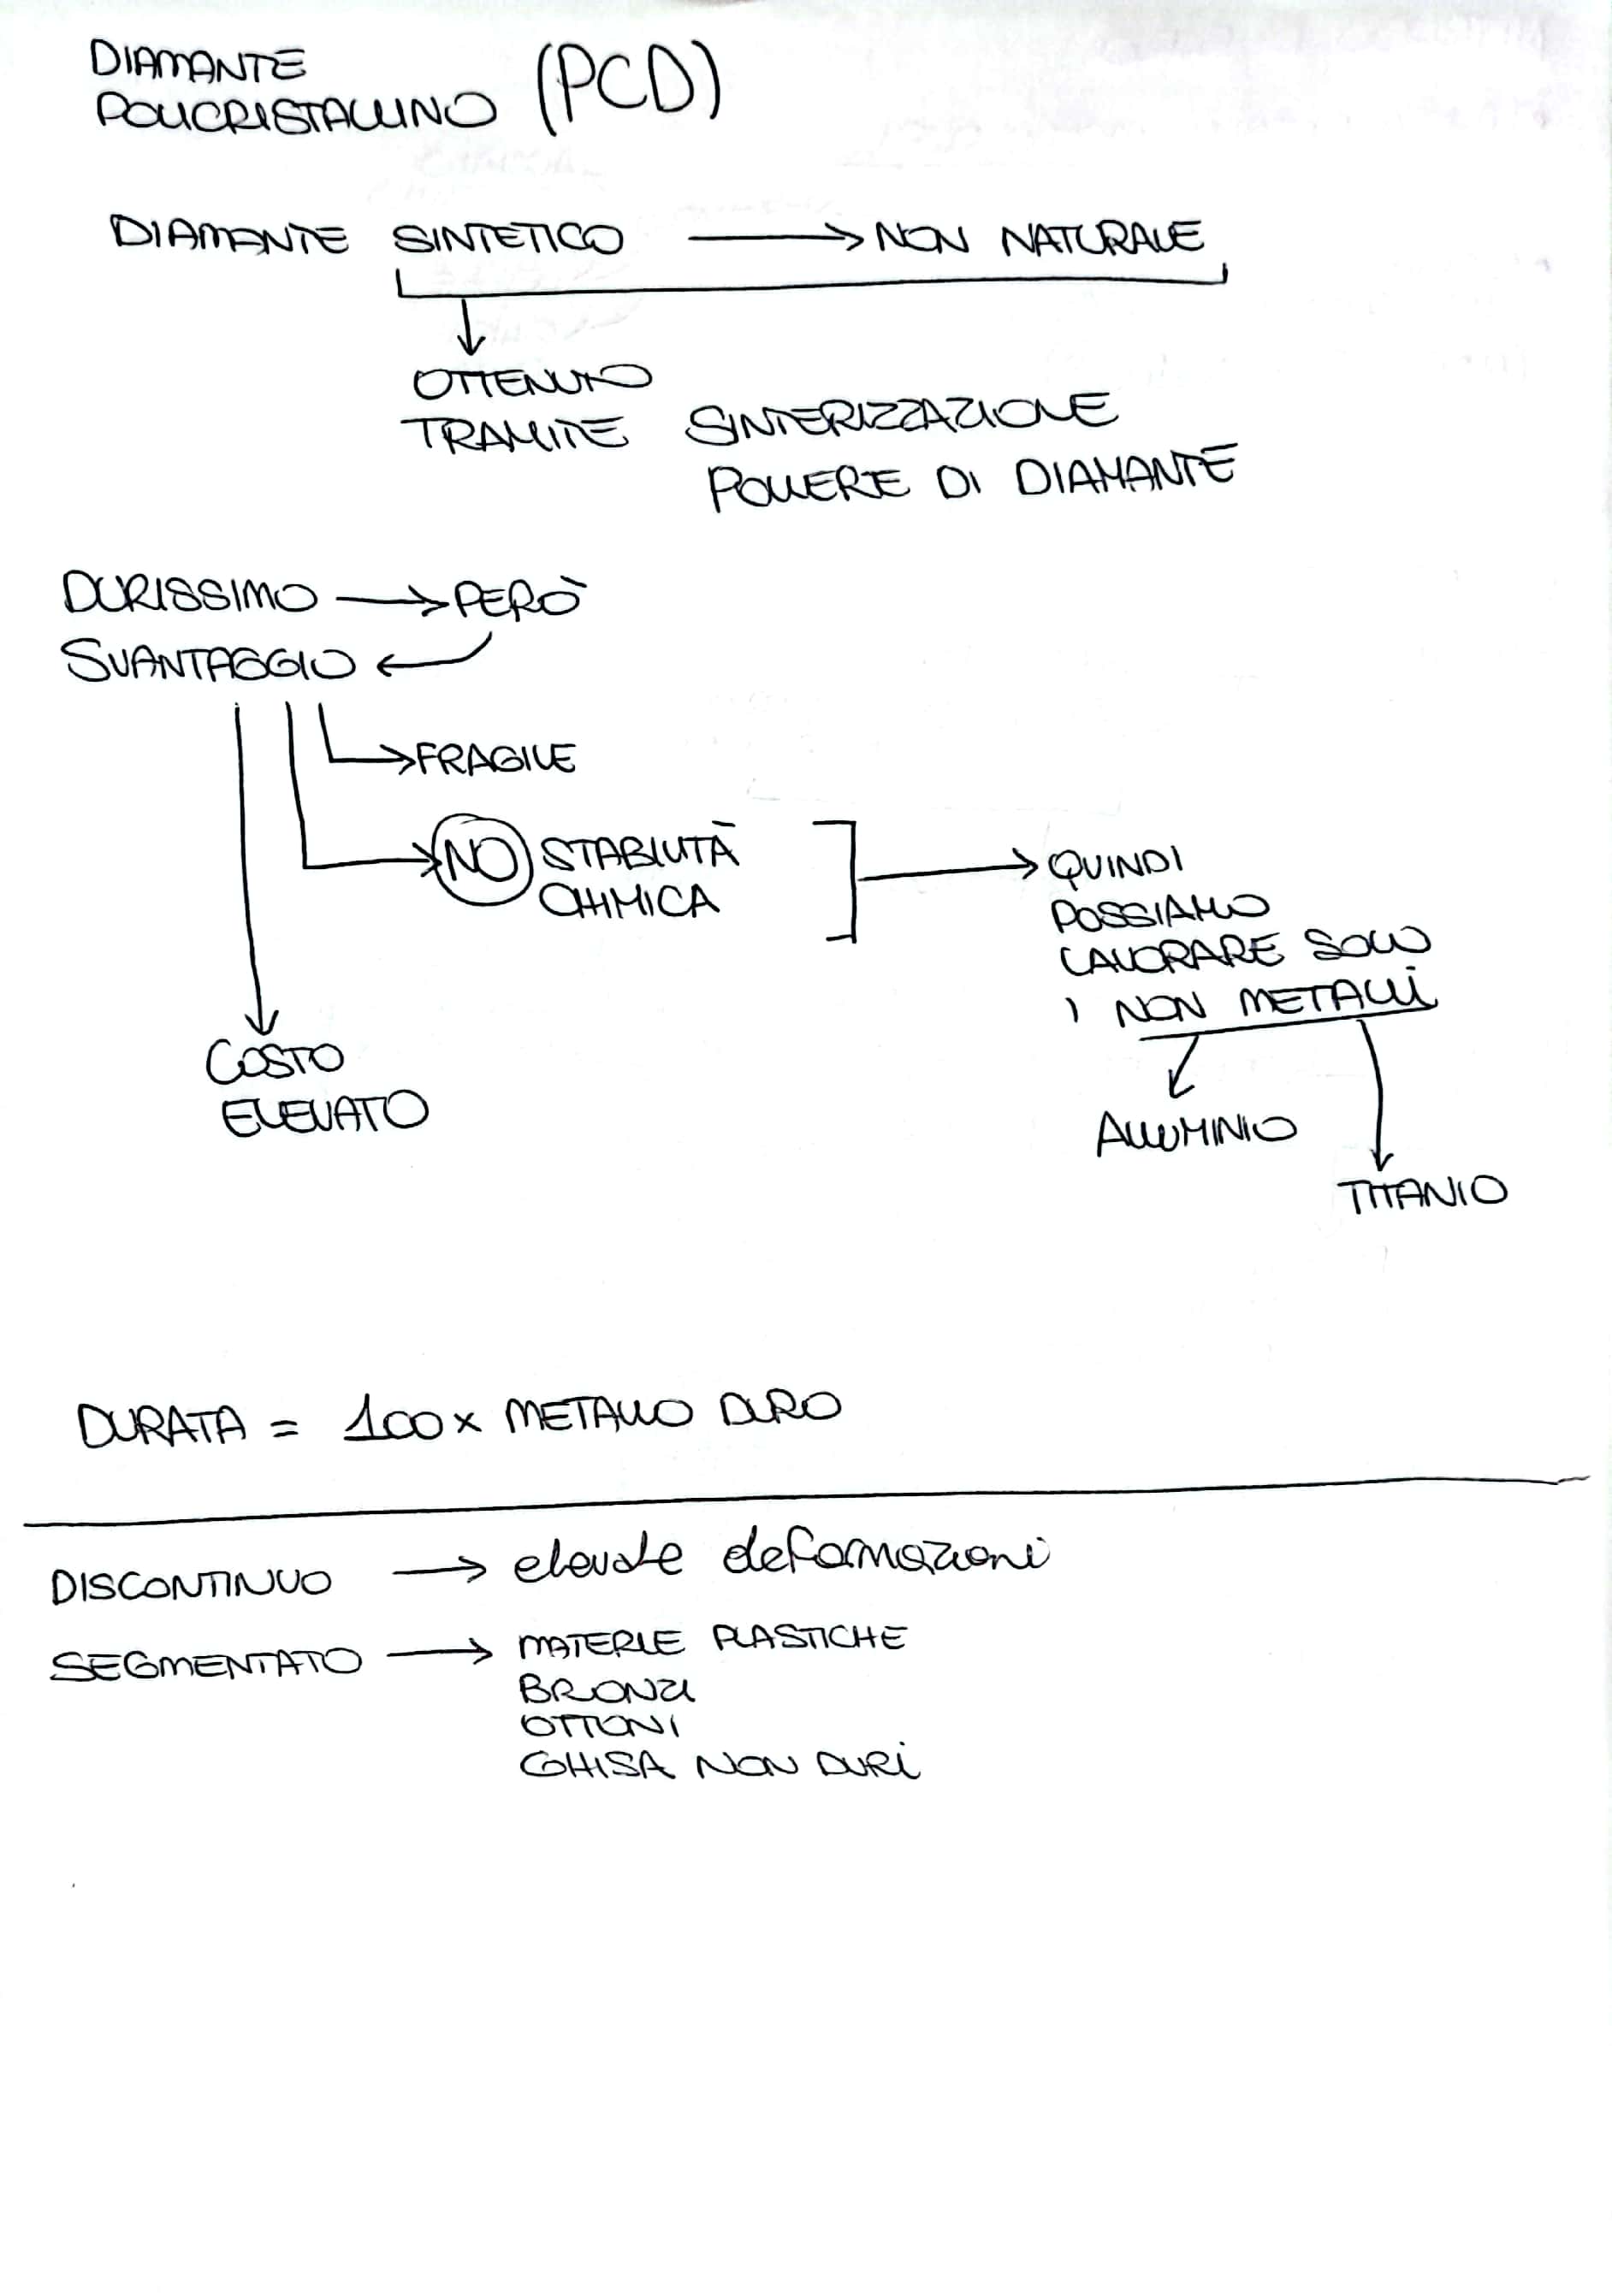 DIAMANTE
POLICRISTALLINO (PCD)
DIAMANTE SINTETICO → NON NATURALE
OTTENUTO
TRAMITE SINTERIZZAZIONE
POLVERE DI DIAMANTE
DURISSIMO → PERÒ
SVANTAGGIO ←
→ FRAGILE
→ NO STABILITÀ
CHIMICA
→ QUINDI
POSSIAMO
LAVORARE SOLO
I NON METALLI
COSTO
ELEVATO
ALLUMINIO
TITANIO
DURATA = 100x METALLO DURO
DISCONTINUO → elevate deformazioni
SEGMENTATO → MATERIE PLASTICHE
BRONZI
OTTONI
GHISA NON DURI